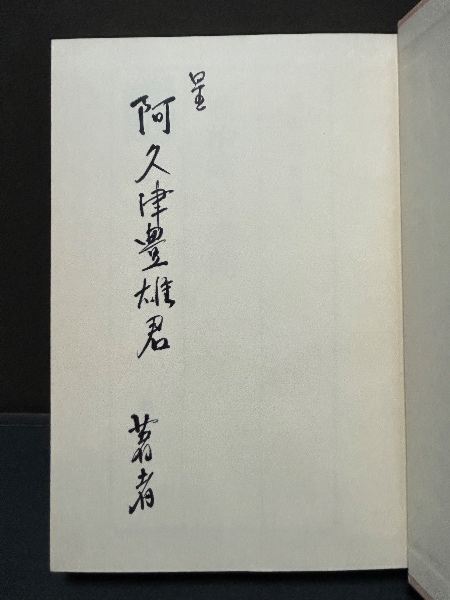 呈
阿久津豊雄君
著者